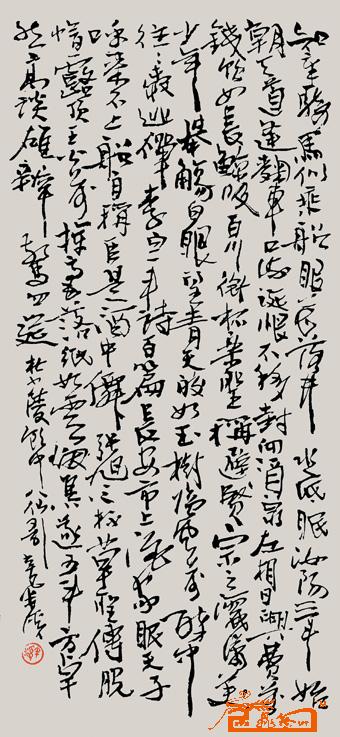 知章骑马似乘船眼花落井水底眠汝阳三斗始
朝天道逢麹車口流涎恨不移封向酒泉左相日興費萬
錢飲如長鯨吸百川銜杯樂聖稱避賢宗之瀟灑美
少年舉觴白眼望青天皎如玉樹臨風前醉中
往往愛逃禪李白一斗詩百篇長安市上酒家眠天子
呼来不上船自稱臣是酒中僊張旭三杯草聖傳脱
帽露頂王公前揮毫落紙如雲煙焦遂五斗方卓
然高談雄辯驚四筵杜少陵飲中八仙歌